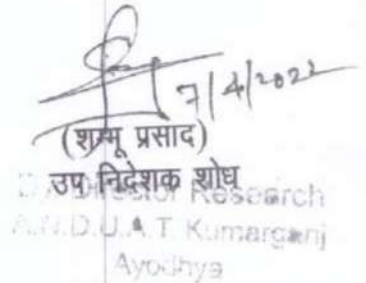 7/4/2022
(शम्भू प्रसाद)
उप निदेशक शोध
Director Research
A.N.D.U.A.T. Kumarganj
Ayodhya